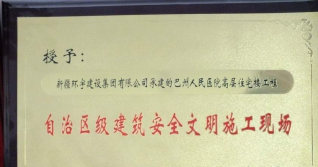 授予：
新疆环宇建设集团有限公司承建的巴州人民医院高层住宅楼工程
自治区级建筑安全文明施工现场